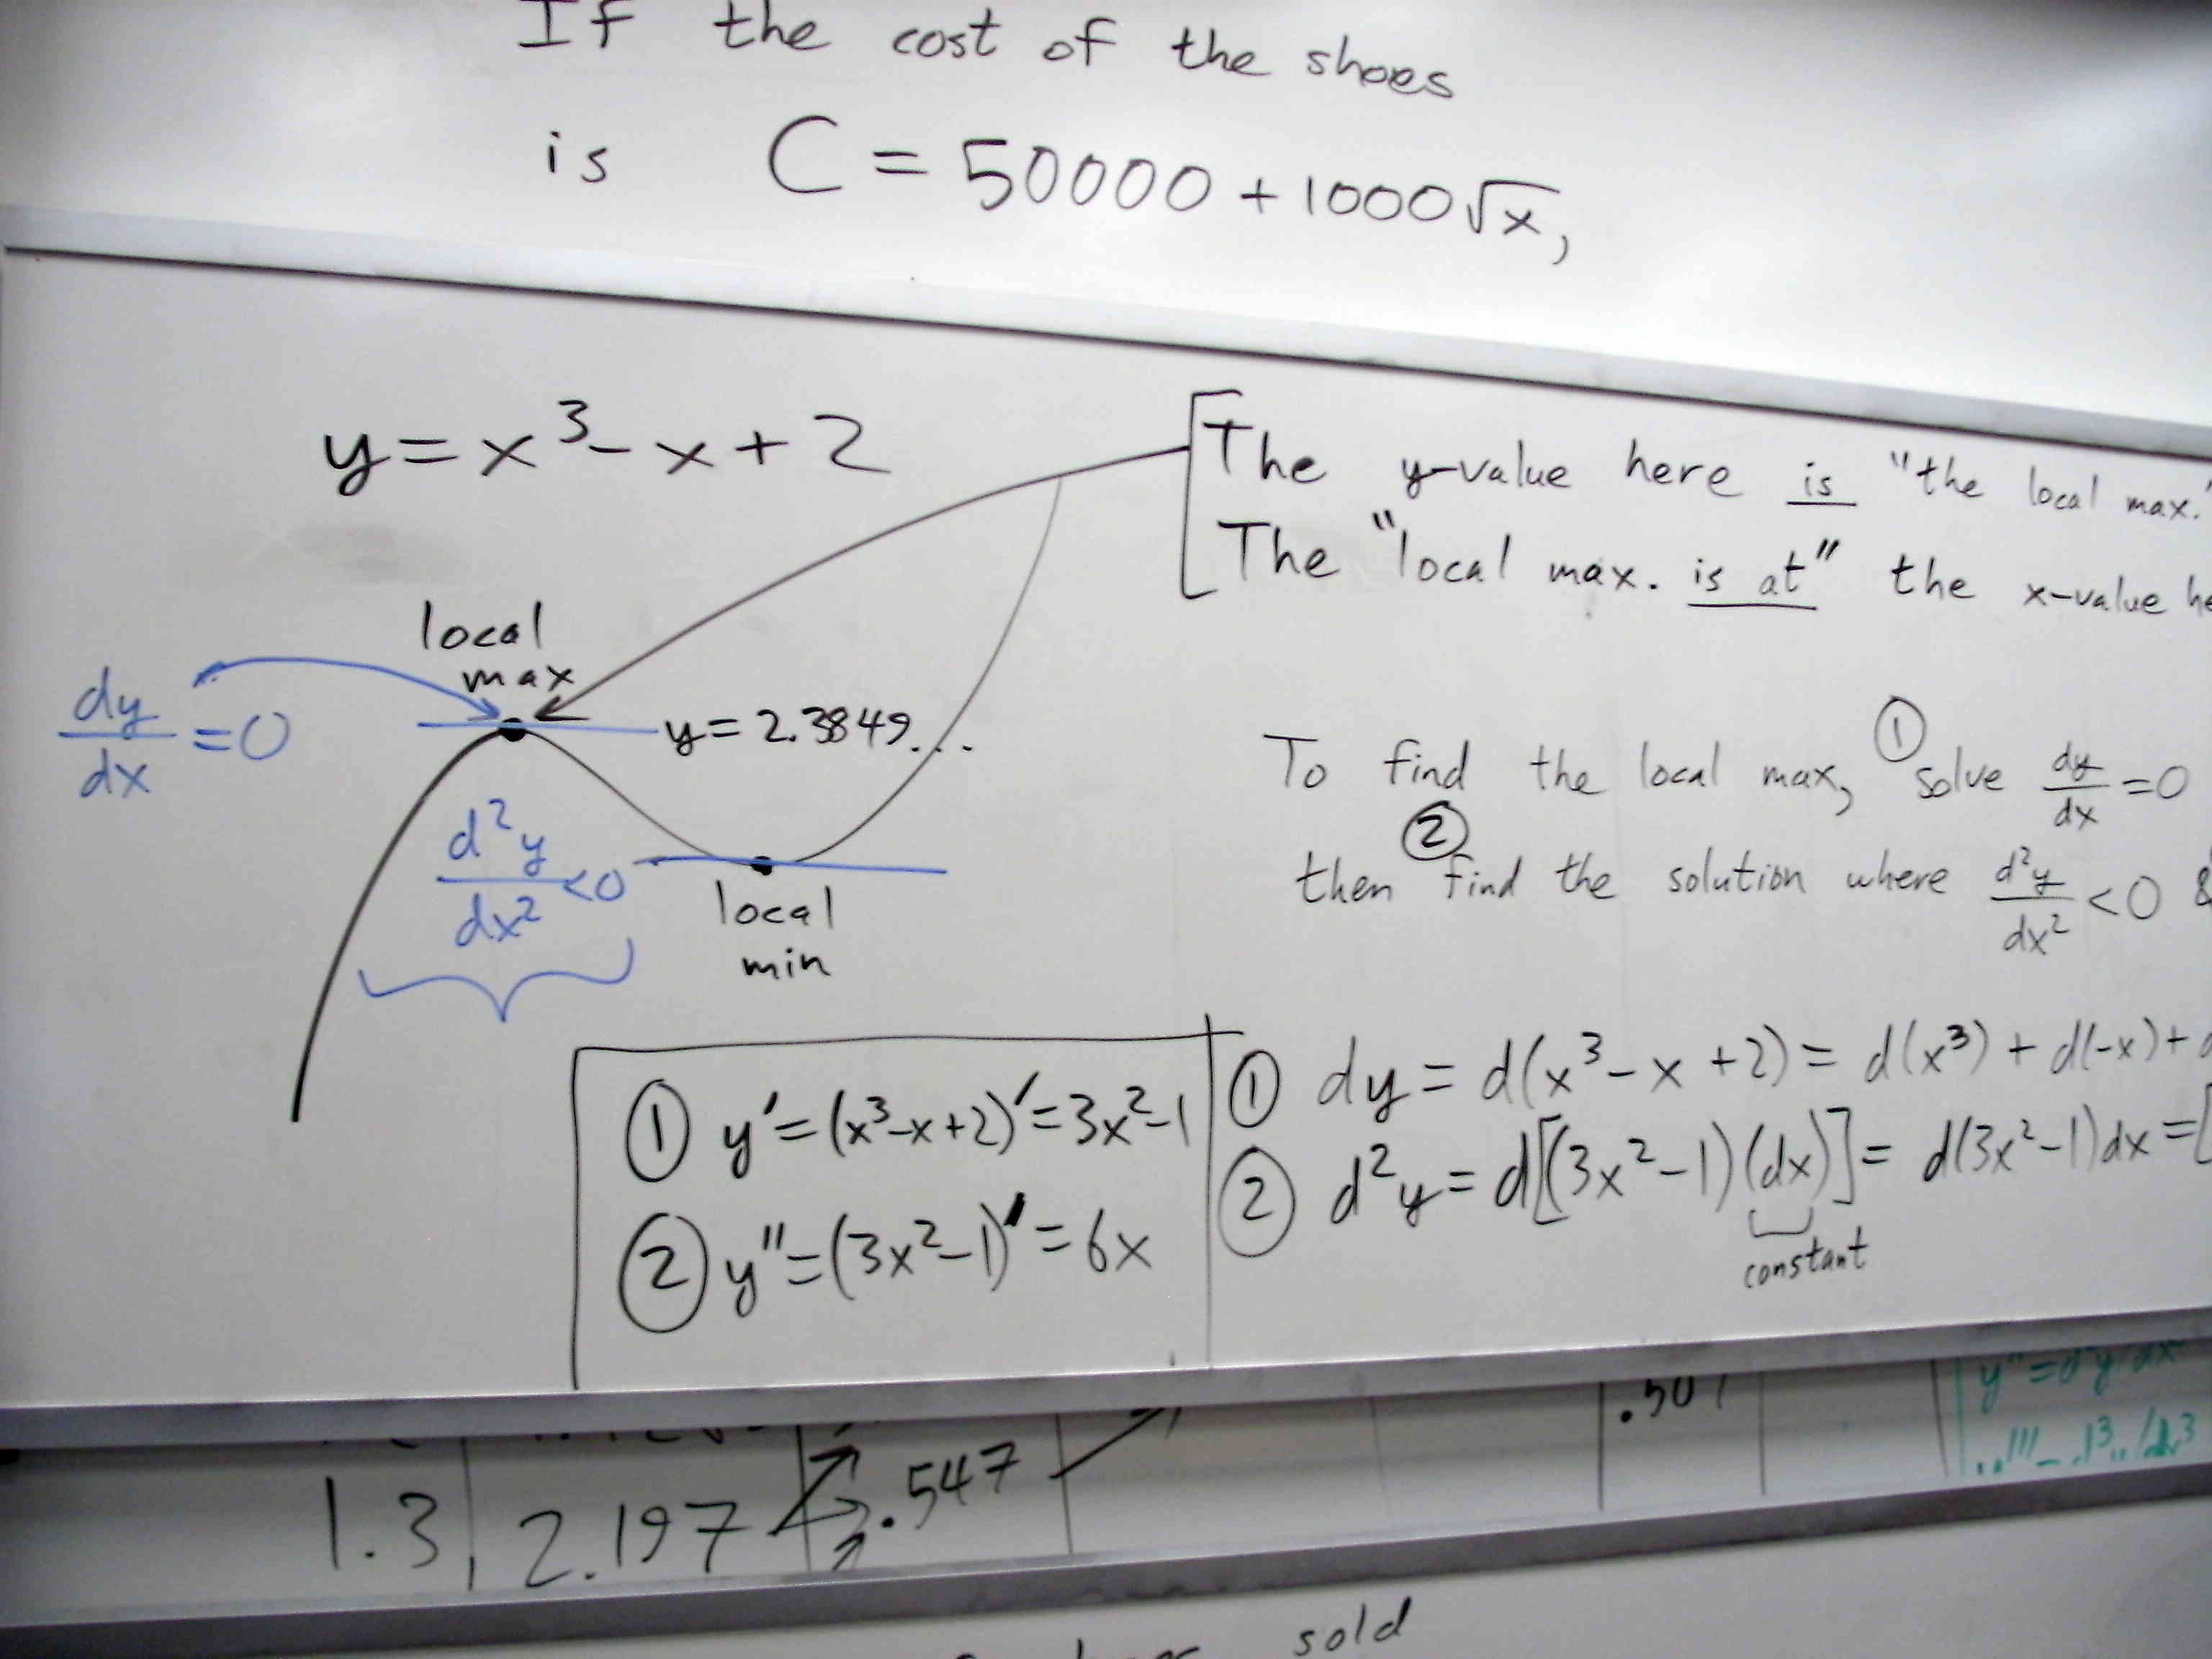 If the cost of the shoes
is C = 50000 + 1000√x,
y = x³ - x + 2
The y-value here is "the local max."
The "local max. is at" the x-value
local
max
dy/dx = 0
y = 2.3849...
d²y/dx² < 0
local
min
To find the local max, ① solve dy/dx = 0
then ② find the solution where d²y/dx² < 0 &
① y' = (x³-x+2)' = 3x²-1
② y'' = (3x²-1)' = 6x
① dy = d(x³ - x + 2) = d(x³) + d(-x) +
② d²y = d[(3x² - 1)(dx)] = d(3x² - 1)dx = [
constant
.507
1.3 2.197 .547
sold